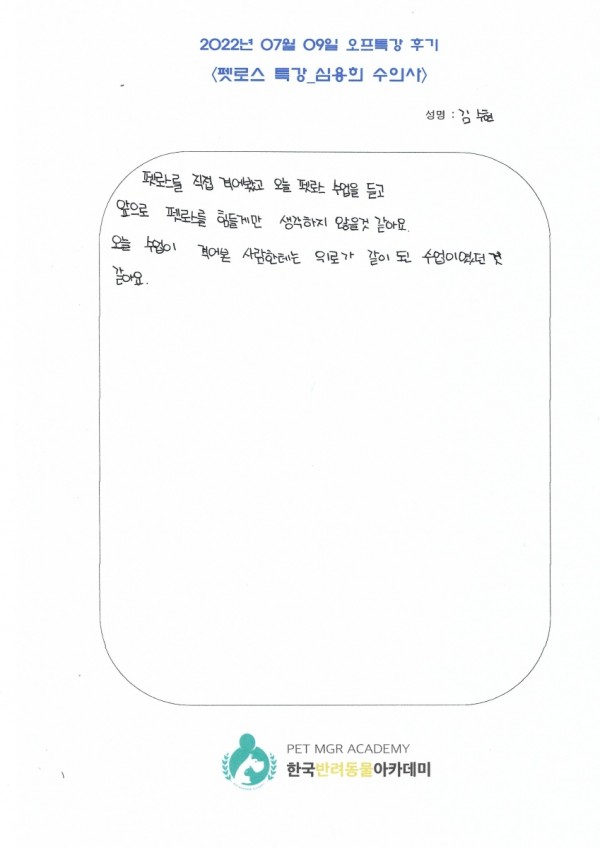 2022년 07월 09일 오프특강 후기
<펫로스 특강_심용희 수의사>
성명 : 김수현
펫로스를 직접 겪어봤고 오늘 펫로스 수업을 듣고
앞으로 펫로스를 힘들게만 생각하지 않을것 같아요.
오늘 수업이 겪어본 사람한테는 위로가 같이 된 수업이였던 것
같아요.
PET MGR ACADEMY
한국반려동물아카데미